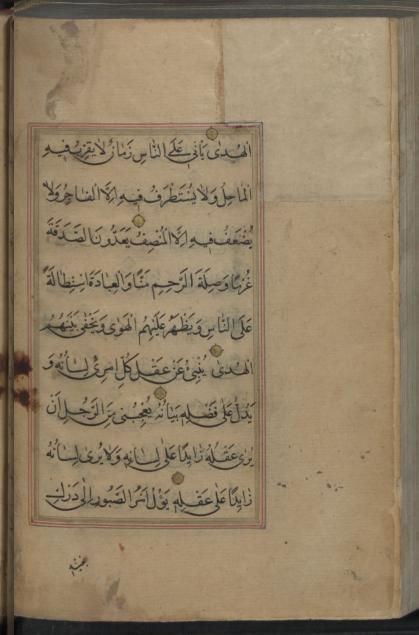 الهدى يأتي على الناس زمان لا يقرب فيه
الماحل ولا يستظرف فيه الا الفاجر ولا
يضعف فيه الا المنصف يعدون الصدقة
غرما وصلة الرحم منا والعبادة استطالة
على الناس ويظهر عليهم الهوى ويخفى بينهم
الهدى ينبئ عن عقل كل امرئ لسانه و
يدل على فضله بيانه يعجبني من الرجل أن
يرى عقله زايدا على لسانه ولا يرى لسانه
زايدا على عقله يؤل أمر الصبور الى درك